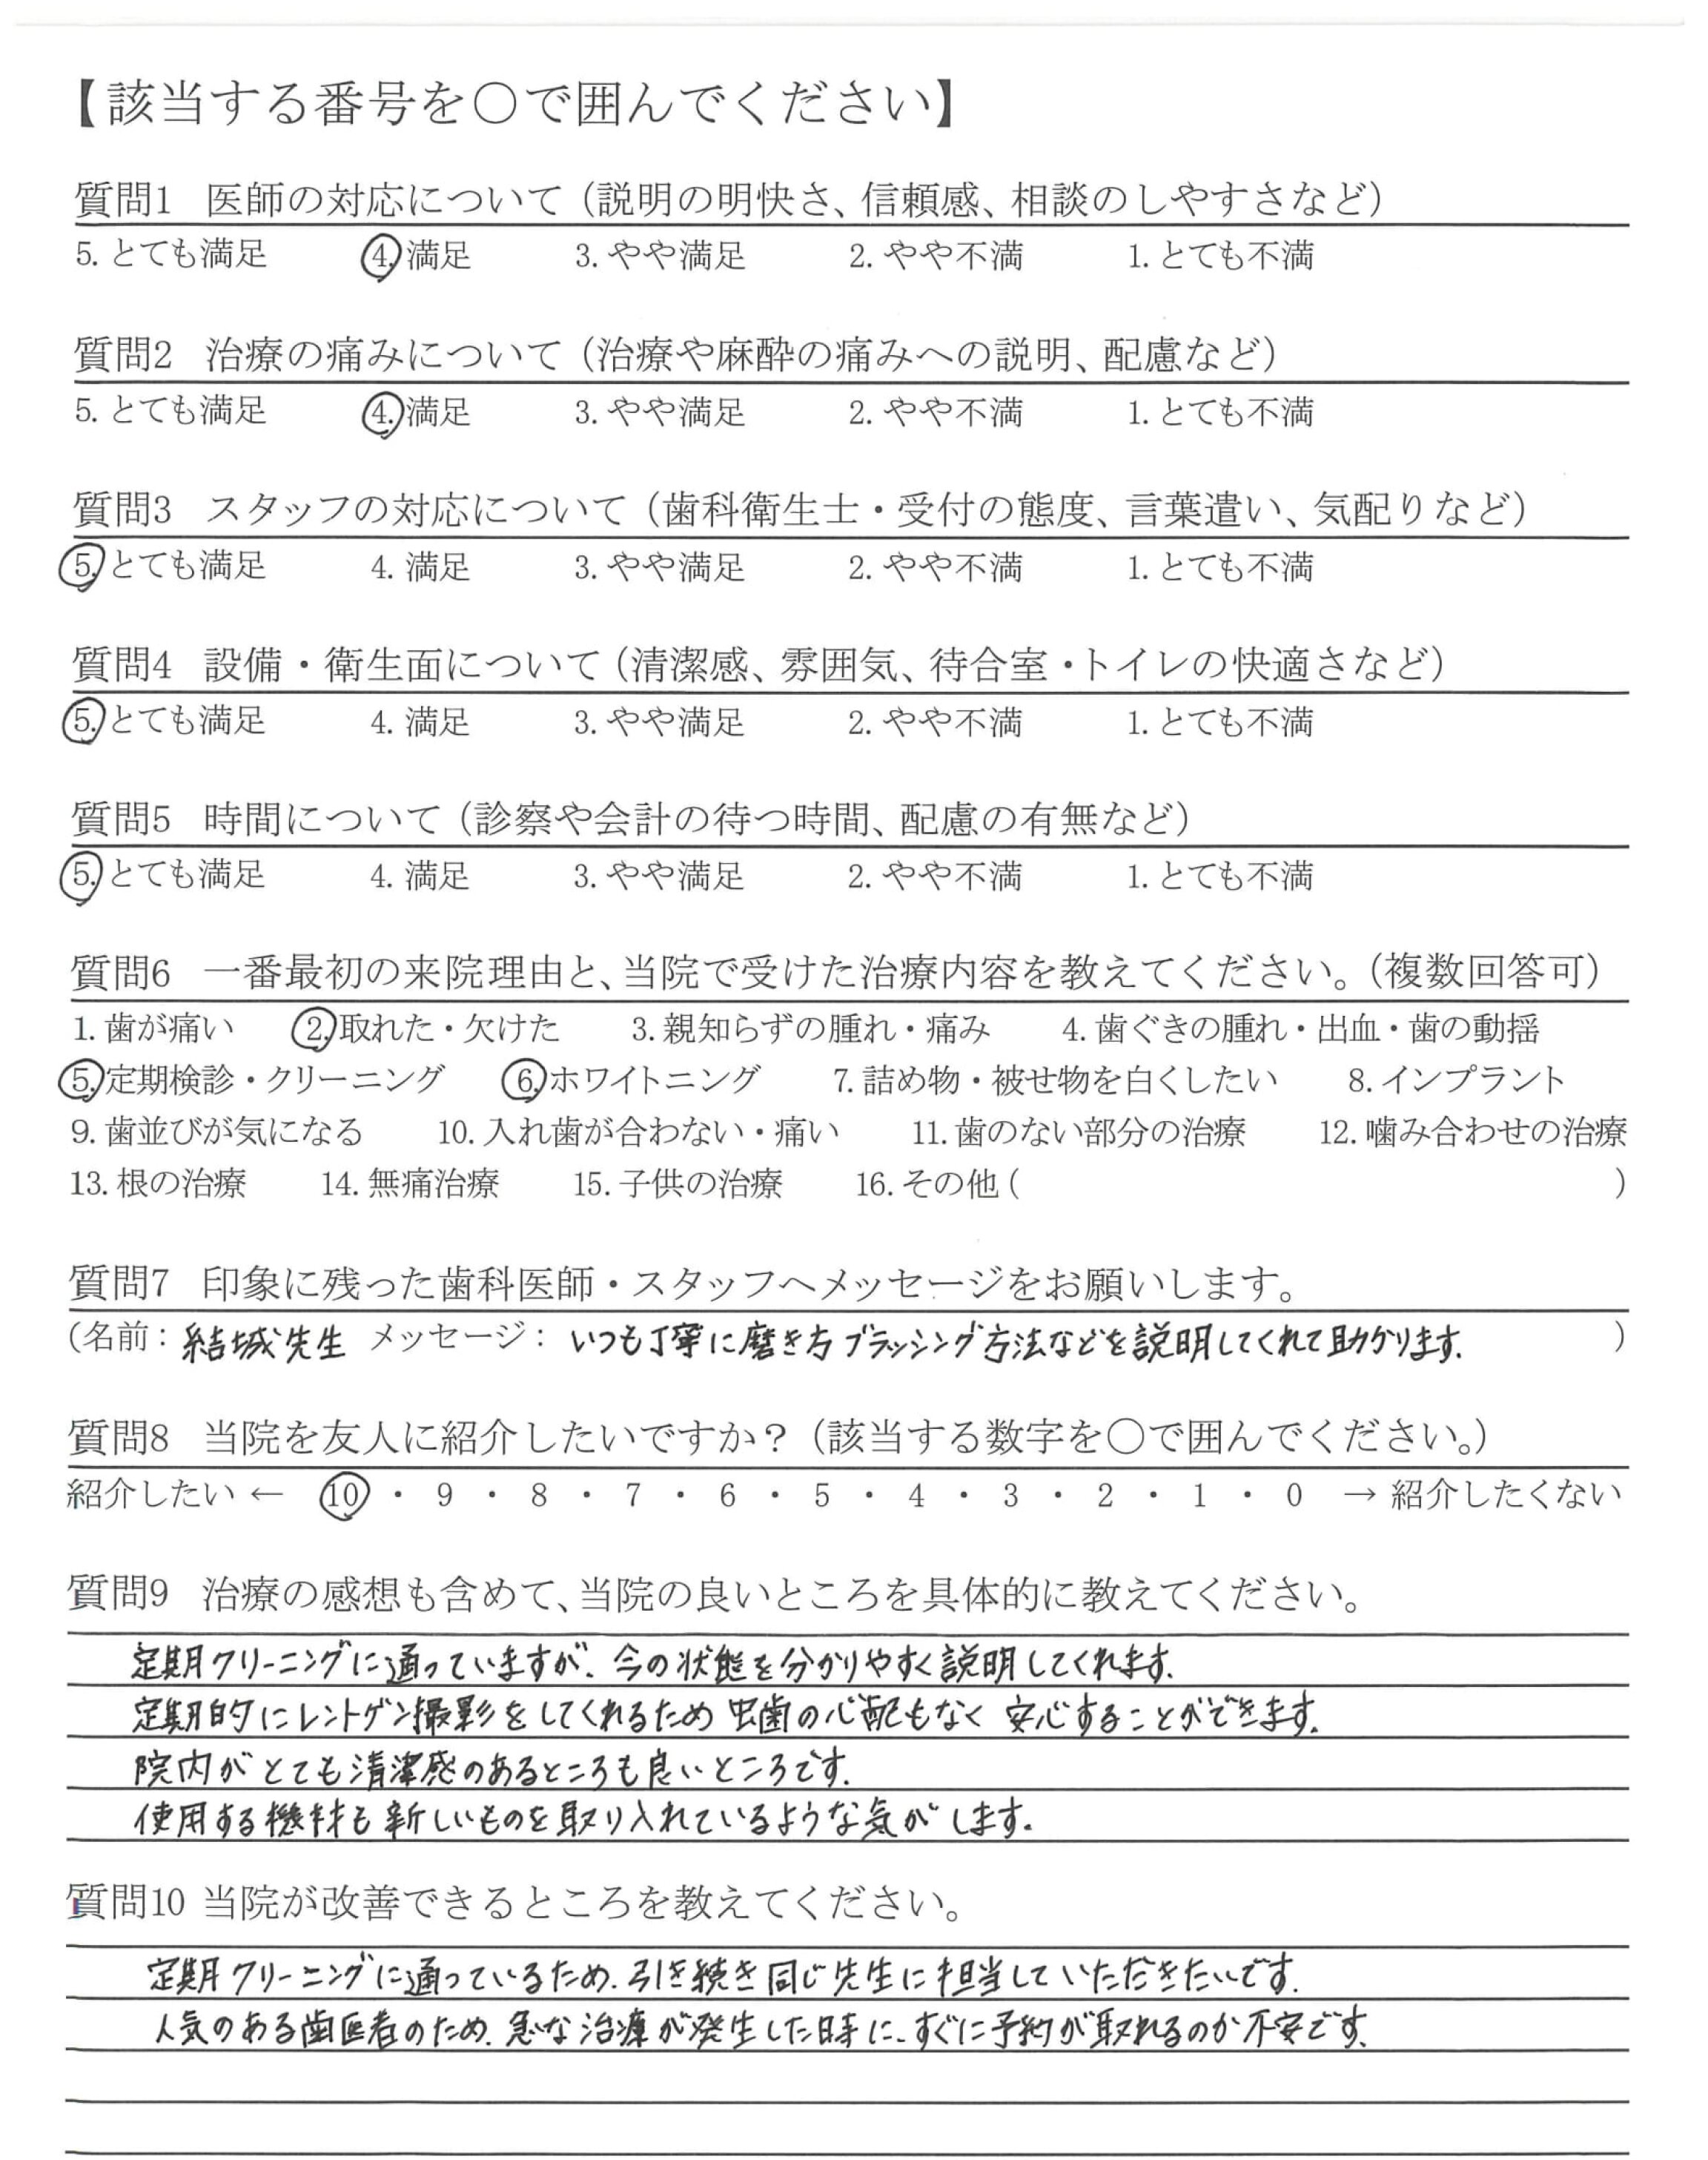 【該当する番号を〇で囲んでください】
質問1 医師の対応について（説明の明快さ、信頼感、相談のしやすさなど）
5. とても満足 4. 満足 3. やや満足 2. やや不満 1. とても不満
質問2 治療の痛みについて（治療や麻酔の痛みへの説明、配慮など）
5. とても満足 4. 満足 3. やや満足 2. やや不満 1. とても不満
質問3 スタッフの対応について（歯科衛生士・受付の態度、言葉遣い、気配りなど）
5. とても満足 4. 満足 3. やや満足 2. やや不満 1. とても不満
質問4 設備・衛生面について（清潔感、雰囲気、待合室・トイレの快適さなど）
5. とても満足 4. 満足 3. やや満足 2. やや不満 1. とても不満
質問5 時間について（診察や会計の待つ時間、配慮の有無など）
5. とても満足 4. 満足 3. やや満足 2. やや不満 1. とても不満
質問6 一番最初の来院理由と、当院で受けた治療内容を教えてください。（複数回答可）
1. 歯が痛い 2. 取れた・欠けた 3. 親知らずの腫れ・痛み 4. 歯ぐきの腫れ・出血・歯の動揺
5. 定期検診・クリーニング 6. ホワイトニング 7. 詰め物・被せ物を白くしたい 8. インプラント
9. 歯並びが気になる 10. 入れ歯が合わない・痛い 11. 歯のない部分の治療 12. 噛み合わせの治療
13. 根の治療 14. 無痛治療 15. 子供の治療 16. その他 ( )
質問7 印象に残った歯科医師・スタッフへメッセージをお願いします。
(名前：結城先生 メッセージ：いつも丁寧に磨き方ブラッシング方法などを説明してくれて助かります。 )
質問8 当院を友人に紹介したいですか？（該当する数字を〇で囲んでください。）
紹介したい ← 10 ・ 9 ・ 8 ・ 7 ・ 6 ・ 5 ・ 4 ・ 3 ・ 2 ・ 1 ・ 0 → 紹介したくない
質問9 治療の感想も含めて、当院の良いところを具体的に教えてください。
定期クリーニングに通っていますが、今の状態を分かりやすく説明してくれます。
定期的にレントゲン撮影をしてくれるため虫歯の心配もなく 安心することができます。
院内がとても清潔感のあるところも良いところです。
使用する機材も新しいものを取り入れているような気がします。
質問10 当院が改善できるところを教えてください。
定期クリーニングに通っているため、引き続き同じ先生に担当していただきたいです。
人気のある歯医者のため、急な治療が発生した時に、すぐに予約が取れるのか不安です。